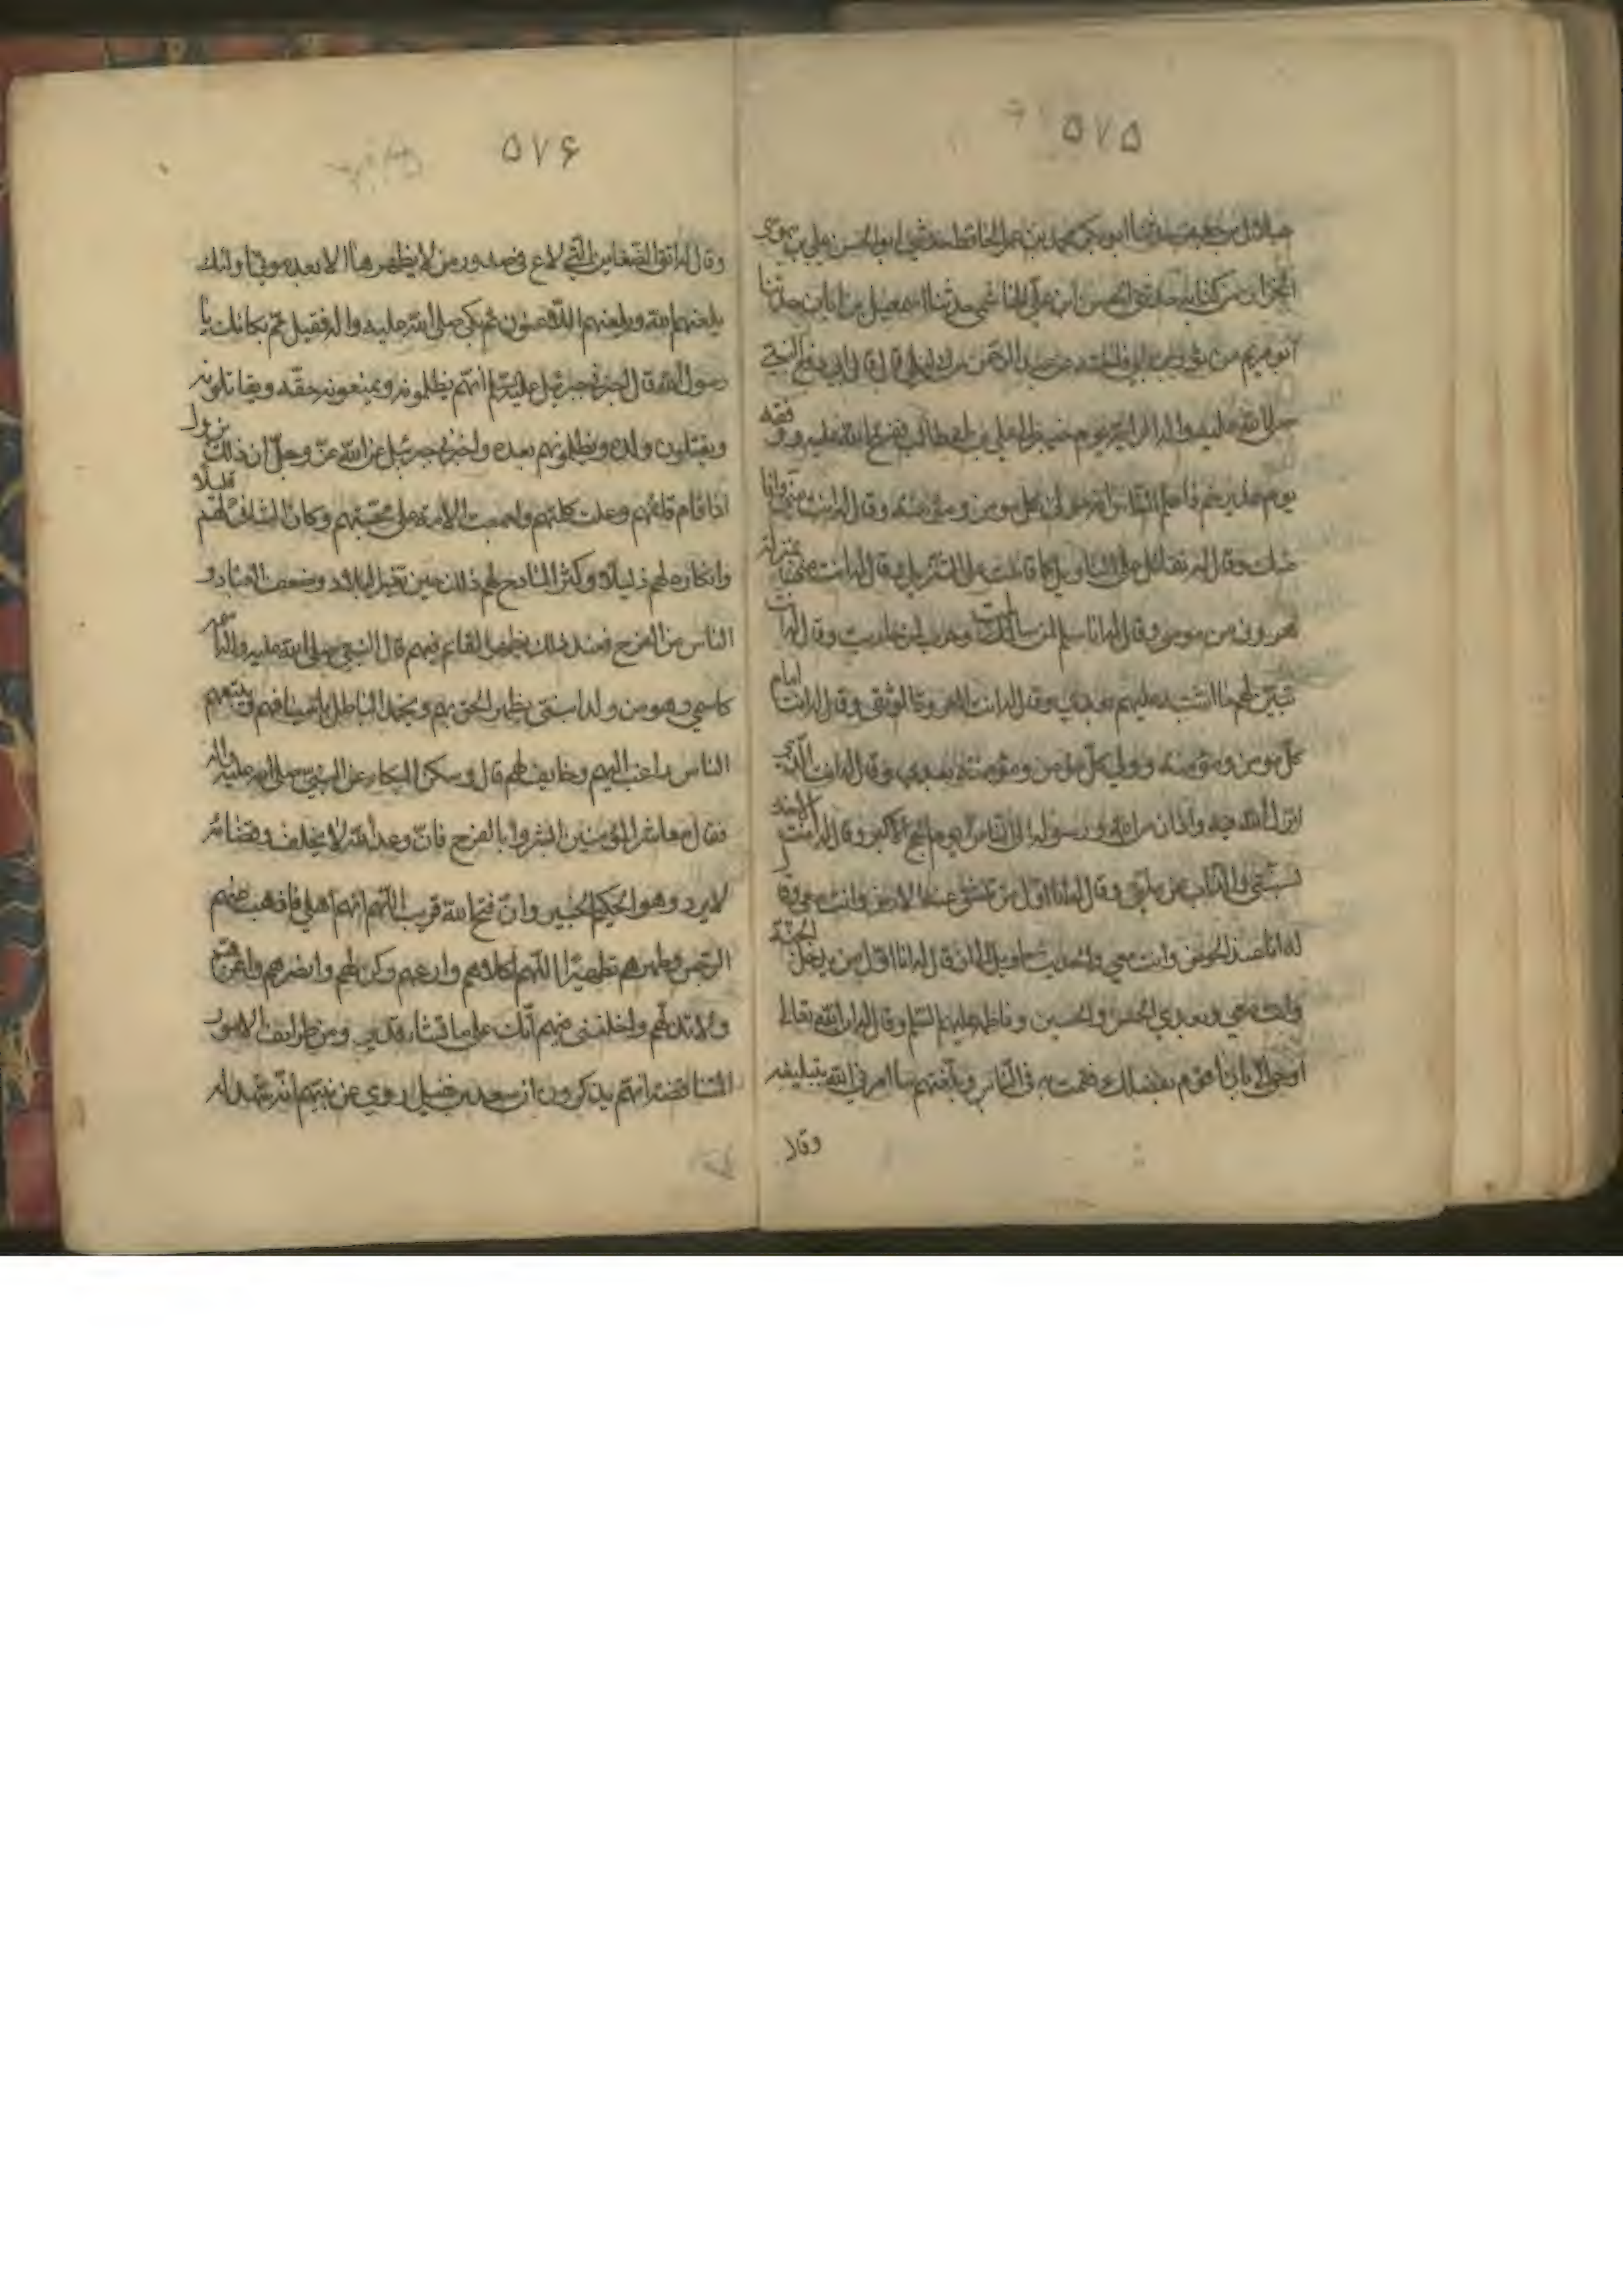 ٥٧٥
حدثنا ابو بكر محمد بن عمر الحافظ حدثني ابو الحسن علي بن موسى
الخزاز من كتابه حدثنا الحسن بن علي الهاشمي حدثنا اسمعيل بن ابان حدثنا
ابو مريم عن ثوير بن عن عبد الرحمن بن ابي ليلى قال قال ابي دفع النبي
صلى الله عليه واله الراية يوم خيبر الى علي بن ابي طالب ففتح الله عليه ووقفه
يوم غدير خم فاعلم الناس انه مولى كل مومن ومؤمنة وقال له انت مني وانا
منك وقال له تقاتل على التاويل كما قاتلت على التنزيل وقال له انت مني بمنزلة
هرون من موسى وقال له انا سلم لمن سالمت وحرب لمن حاربت وقال له انت
تبين لهم ما اشتبه عليهم بعدي وقال له انت العروة الوثقى وقال له انت امام
كل مومن ومؤمنة وولي كل مؤمن ومؤمنة بعدي وقال له انت الذي
انزل الله فيه واذان من الله ورسوله الى الناس يوم الحج الاكبر وقال له انت الاخذ
بسنتي والذاب عن ملتي وقال له انا اول من تنشق عنه الارض وانت معي وقال
له انا عند الحوض وانت معي والحديث طويل الى ان قال له انا اول من يدخل الجنة
وانت معي وبعدي الحسن والحسين وفاطمة عليهم السلم وقال له ان الله تعالى
اوحى الي بان اقوم بفضلك فقمت به في الناس وبلغتهم ما امرني الله بتبليغه
وقال
٥٧۶
وقال له اتق الضغاين التي لك في صدور من لا يظهرها الا بعد موتي اولئك
يلعنهم الله ويلعنهم اللاعنون ثم بكى صلى الله عليه واله فقيل مم بكائك يا
رسول الله قال اخبرني جبرئيل عليه السلم انهم يظلمونه ويمنعونه حقه ويقاتلونه
ويقتلون ولده ويظلمونهم بعده واخبرني جبرئيل عن الله عز وجل ان ذلك يزول
اذا قام قائمهم وعلت كلمتهم واجمعت الامة على محبتهم وكان الشانئ لهم قليلا
والكاره لهم ذليلا وكثر المادح لهم ذلك حين تغير البلاد وضعف العباد و
الناس من الفرج فعند ذلك يظهر القائم فيهم قال النبي صلى الله عليه واله اسمه
كاسمي وهو من ولد ابنتي يظهر الحق بهم ويخمد الباطل باسيافهم ويتبعهم
الناس راغب اليهم وخايف لهم قال وسكن البكاء عن النبي صلى الله عليه واله
فقال معاشر المؤمنين ابشروا بالفرج فان وعد الله لا يخلف وقضائه
لا يرد وهو الحكيم الخبير وان فتح الله قريب اللهم انهم اهلي فاذهب عنهم
الرجس وطهرهم تطهيرا اللهم اكلاهم وارعهم وكن لهم وانصرهم واعزهم
ولا تذلهم واخلفني فيهم انك على ما تشاء قدير ومن طرايف الامور
المتناقضة انهم يذكرون ان سعد بن روي عن نبيهم انه شهد له